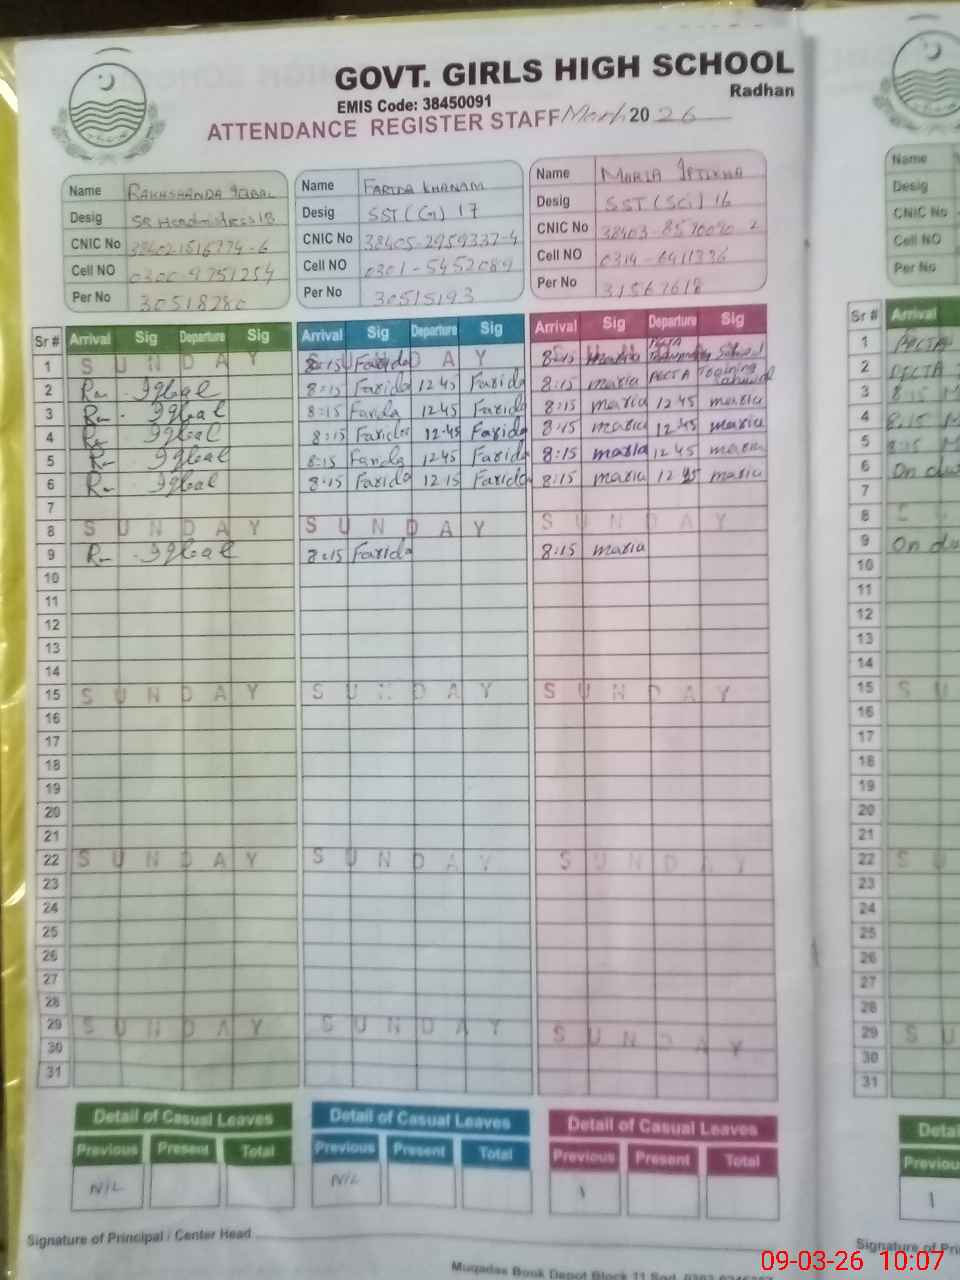 GOVT. GIRLS HIGH SCHOOL
Radhan
EMIS Code: 38450091
ATTENDANCE REGISTER STAFF March 20 26
Name RAKHSHANDA IQBAL
Desig SR Headmistress 18
CNIC No
Cell NO 0300-9751254
Per No 30518280
Name FARIDA KHANAM
Desig SST (G) 17
CNIC No 38405-2959337-4
Cell NO 0301-5452089
Per No 30515193
Name MARIA
Desig SST (Sci) 16
CNIC No
Cell NO
Per No 31567618
Sr # Arrival Sig Departure Sig Arrival Sig Departure Sig Arrival Sig Departure Sig
1 SUNDAY 8:15 Farida 8:15 maria
2 Iqbal 8:15 Farida 12 45 Farida 8:15 maria PECTA Training
3 Iqbal 8:15 Farida 12 45 Farida 8:15 maria 12 45 maria
4 Iqbal 8:15 Farida 12.45 Farida 8:15 maria 12 45 maria
5 Iqbal 8:15 Farida 12 45 Farida 8:15 maria 12 45 maria
6 Iqbal 8:15 Farida 12 15 Farida 8:15 maria 12 maria
7
8 SUNDAY SUNDAY SUNDAY
9 Iqbal 8:15 Farida 8:15 maria
10
11
12
13
14
15 SUNDAY SUNDAY SUNDAY
16
17
18
19
20
21
22 SUNDAY SUNDAY SUNDAY
23
24
25
26
27
28
29 SUNDAY SUNDAY SUNDAY
30
31
Detail of Casual Leaves Detail of Casual Leaves Detail of Casual Leaves
Previous Present Total Previous Present Total Previous Present Total
NIL NIL 1
Signature of Principal / Center Head
Muqadas Book Depot Block 11
Name
Desig
CNIC No
Cell No
Per No
Sr # Arrival
1 PECTA
2 PECTA
3 8:15
4 8:15
5 8:15
6 On du
7
8 S
9 On du
10
11
12
13
14
15 SU
16
17
18
19
20
21
22 SU
23
24
25
26
27
28
29 SU
30
31
Detai
Previou
1
Signature of Pri
09-03-26 10:07